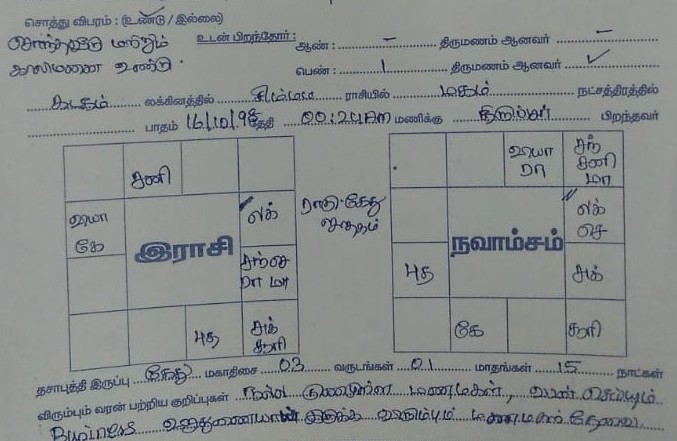 சொத்து விபரம் : (உண்டு / இல்லை)
சொந்தவீடு மற்றும் உடன் பிறந்தோர் : ஆண் : – திருமணம் ஆனவர் –
காலிமனை உண்டு. பெண் : 1 திருமணம் ஆனவர் ✓
கடகம் லக்கினத்தில் சிம்மம ராசியில் மகம் நட்சத்திரத்தில்
பாதம் 16/10/98 தேதி 00:24AM மணிக்கு பிறந்தவர்
சனி
வியா கே
இராசி
லக்
சந் செ ரா மா
புத
சுக் சூரி
ராகு-கேது ஜாதகம்
வியா ரா
சந் சனி மா
நவாம்சம்
லக் செ
புத
சுக்
கே
சூரி
தசாபுத்தி இருப்பு கேது மகாதிசை 03 வருடங்கள் 01 மாதங்கள் 15 நாட்கள்
விரும்பும் வரன் பற்றிய குறிப்புகள் நல்ல குணமுள்ள மணமகள்,
மணமகள் தேவை.